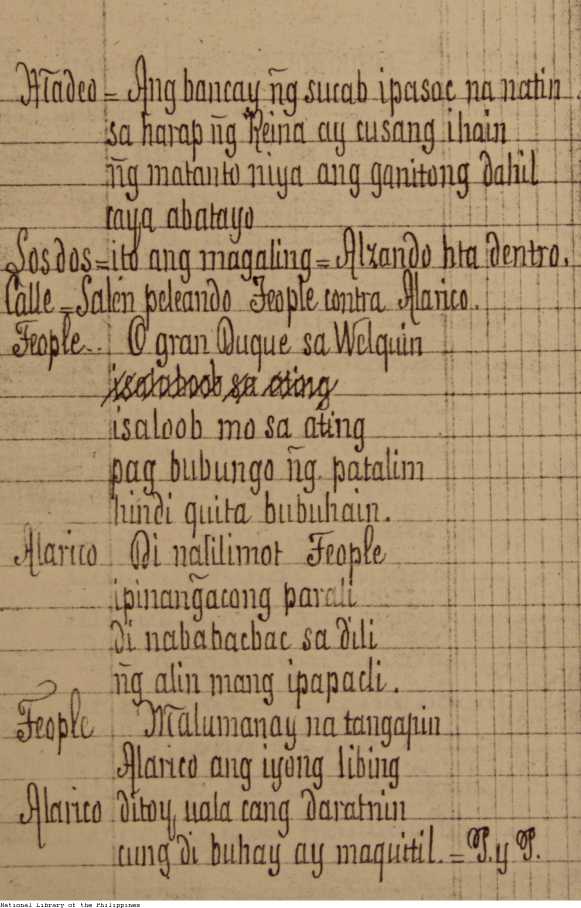 Atadeo = Ang bancay n̄g sucab ipasoc na natin
sa harap n̄g Reina ay cusang ihain
n̄g matanto niya ang ganitong dahil
caya abatayo
Los dos = ito ang magaling = Alzando hta dentro.
Calle = Salen peleando Feople contra Alarico.
Feople O gran Duque sa Welquin
isaloob sa ating
isaloob mo sa ating
pag bubungo n̄g patalim
hindi quita bubuhain.
Alarico Di nalilimot Feople
ipinan̄gacong parali
di nababacbac sa dili
n̄g alin mang ipapadi.
Feople Malumanay na tangapin
Alarico ang iyong libing
Alarico ditoy, uala cang daratnin
cung di buhay ay maquitil. = P. y P.
National Library of the Philippines